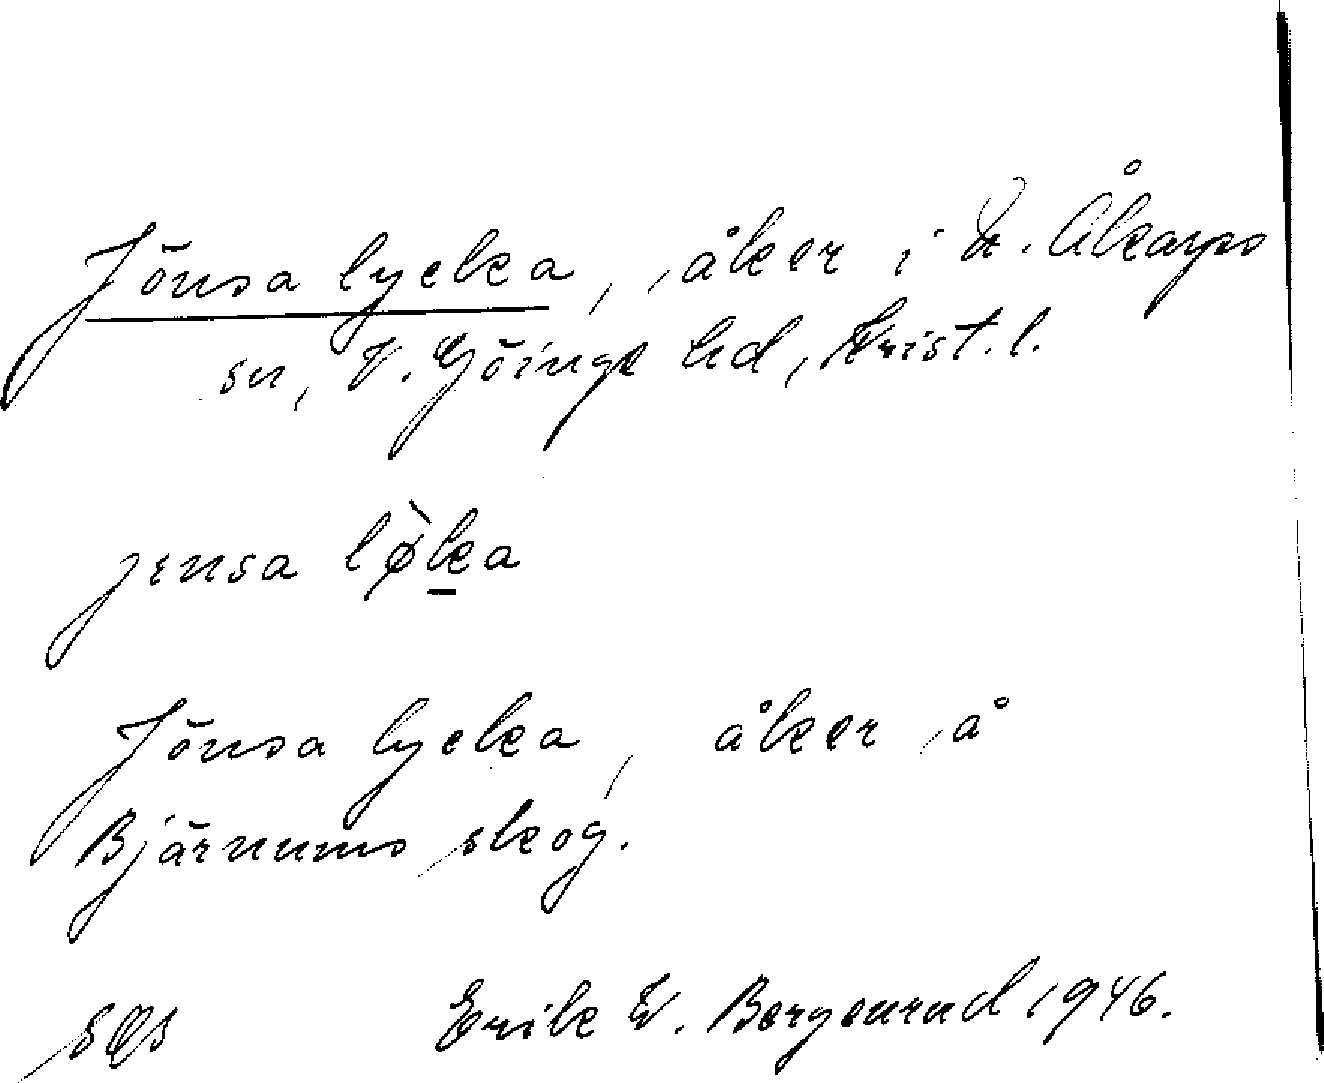 Jönsa lycka, åker i N. Åkarps
sn, V. Göinge hd, Krist. l.
jensa lø̀ka
Jönsa lycka, åker å
Bjärnums skog.
Erik W. Bergenrud 1946.